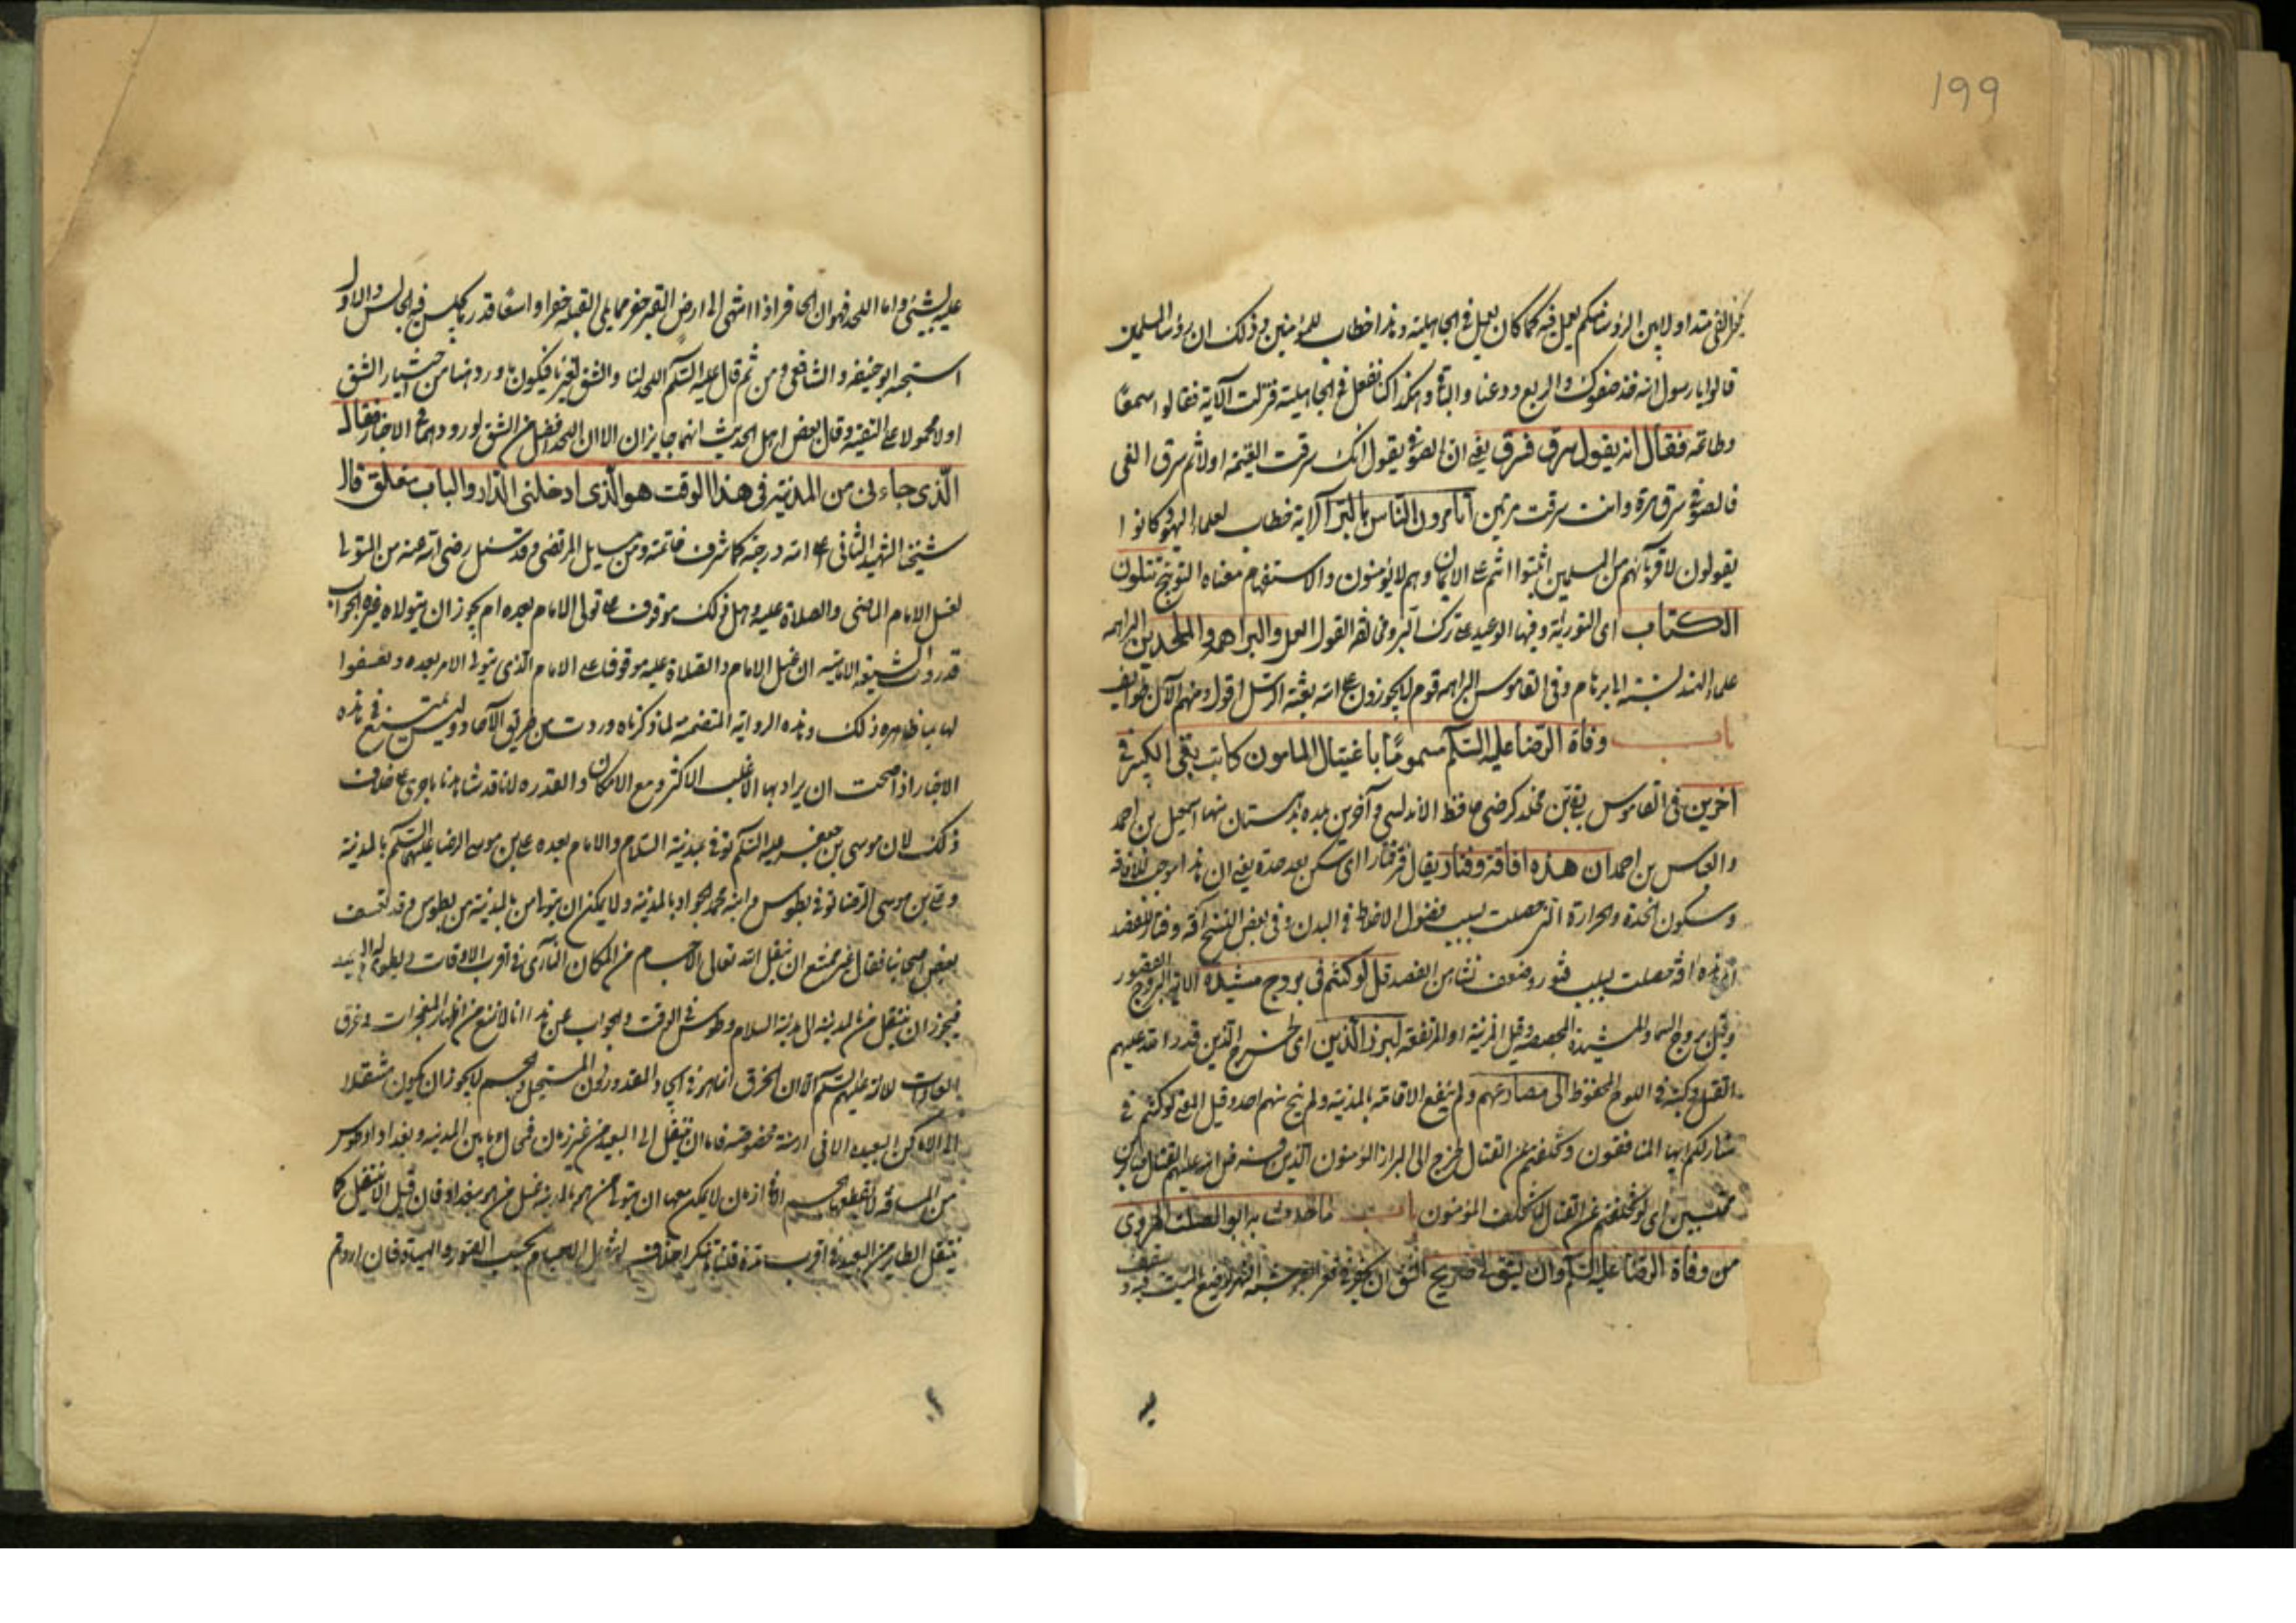 199
الفئ متداولا بين الرؤساء منكم يعمل فيه كما كان يعمل في الجاهلية وهذا خطاب للمؤمنين وذلك ان رؤساء المسلمين
قالوا يا رسول الله خذ صفوك والربع ودعنا والباقي وهكذا كنا نفعل في الجاهلية فنزلت الآية فقالوا سمعا
وطاعة فقال انه يقول سرق فسرق يعني ان الصوفي يقول انك سرقت الغنيمة اولا ثم سرق الفئ
فالصوفي سرق مرة وانت سرقت مرتين أتأمرون الناس بالبر الآية خطاب لعلماء اليهود كانوا
يقولون لاقربائهم من المسلمين اثبتوا انتم على الايمان وهم لا يؤمنون والاستفهام معناه التوبيخ تتلون
الكتاب اى التورية وفيها الوعيد على ترك البر ومخالفة القول العمل والبراهمة والملحدين البراهمة
علماء الهند نسبة الى برهام وفى القاموس البراهمة قوم لا يجوزون على الله بعثة الرسل اقول ومنهم الآن طوايف
باب وفاة الرضا عليه السلم مسموما با غتيال المامون كاتب بقى الكبير في
آخرين فى القاموس بقى بن مخلد كرضى حافظ الاندلس وآخرين بلده بدهستان منها اسمعيل بن احمد
والعباس بن احمد ان هذه افاقة وفتار يقال فتر فتارا اى سكن بعد حدة يعنى ان هذا موجب للافاقة
وسكون الحدة والحرارة التى حصلت بسبب فضول الاخلاط في البدن وفى بعض النسخ آفة وفتار للفصد
اى هذه آفة حصلت بسبب فتور وضعف نشا من الفصد قل لو كنتم فى بروج مشيدة الآية البروج القصور
وقيل بروج السماء والمشيدة المجصصة وقيل المزينة او المرتفعة لبرز الذين اى لخرج الذين قدر الله عليهم
القتل وكتبه في اللوح المحفوظ الى مصارعهم ولم ينفع الاقامة بالمدينة ولم ينج منهم احد وقيل المعنى لو كنتم في
منازلكم ايها المنافقون وتخلفتم عن القتال لخرج الى البراز المؤمنون الذين فرض الله عليهم القتال صابرين
محتسبين اى لو تخلفتم عن القتال لا تخلف المؤمنون باب ما حدث به ابو الصلت الهروى
من وفاة الرضا عليه السلم وان يشق لى ضريح الشق ان يحفر في قعر القبر شبه النهر يوضع الميت فيه ويسقف
عليه بشئ واما اللحد فهو ان الحافر اذا انتهى الى ارض القبر حفر مما يلى القبلة حفرا واسعا قدر ما يجلس فيه الجالس والاول
استحبه ابو حنيفة والشافعى ومن ثم قال عليه السلم اللحد لنا والشق لغيرنا فيكون ما ورد هنا من اختيار الشق
اولا محمولا على التقية وقال بعض اهل الحديث انهما جايزان الا ان اللحد افضل من الشق لورودهما في الاخبار فقال
الذى جاء بى من المدينة فى هذا الوقت هو الذى ادخلنى الدار والباب مغلق قال
شيخنا الشهيد الثانى اعلى الله درجته كما شرف خاتمته ومن مسايل المرتضى وقد سئل رضى الله عنه من المتولى
لغسل الامام الماضى والصلاة عليه وهل ذلك موقوف على تولى الامام بعده ام يجوز ان يتولاه غيره الجواب
قد روت الشيعة الامامية ان غسل الامام والصلاة عليه موقوف على الامام الذى يتولى الامر بعده وتعسفوا
لها بما ظاهره ذلك وهذه الرواية المتضمنة لما ذكرناه وردت من طريق الآحاد وليس يمتنع في هذه
الاخبار اذا صحت ان يراد بها الاغلب الاكثر ومع الامكان والقدرة لانا قد شاهدنا ما جرى على خلاف
ذلك لان موسى بن جعفر عليه السلم توفى بمدينة السلام والامام بعده على بن موسى الرضا عليهما السلم بالمدينة
وعلى بن موسى الرضا توفى بطوس وابنه محمد الجواد بالمدينة ولا يمكن ان يتولى من بالمدينة من بطوس وقد تعسف
بعض اصحابنا فقال غير ممتنع ان ينقل الله تعالى الاجسام من المكان النائى في اقرب الاوقات ويطوى له البعيد
فيجوز ان ينتقل من المدينة الى مدينة السلام وطوس في الوقت والجواب عن هذا انا لا نمنع من اظهار المعجزات وخرق
العادات للائمة عليهم السلم الا ان الخرق انما هو في ايجاد المقدور دون المستحيل والجسم لا يجوز ان يكون منتقلا
الى الاماكن البعيدة الا في ازمنة مخصوصة فاما ان ينتقل الى البعيد من غير زمان فمحال وما بين المدينة وبغداد وطوس
من المسافة لا يقطعها الجسم الا في ازمان لا يمكن معها ان يتولى من هو بالمدينة غسل من هو ببغداد فان قيل الا انتقل كما
ينتقل الطاير من البعيد في اقرب مدة قلنا ما ننكر اختلاف انتقال الاجسام بحسب الصور والهيئات فان اردتم